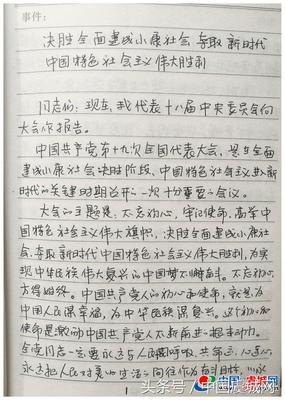 事件:
决胜全面建成小康社会 夺取新时代
中国特色社会主义伟大胜利
同志们:现在,我代表十八届中央委员会向
大会作报告。
中国共产党第十九次全国代表大会,是在全面
建成小康社会决胜阶段、中国特色社会主义进入新
时代的关键时期召开的一次十分重要的会议。
大会的主题是:不忘初心,牢记使命,高举中
国特色社会主义伟大旗帜,决胜全面建成小康社
会,夺取新时代中国特色社会主义伟大胜利,为实
现中华民族伟大复兴的中国梦不懈奋斗。不忘初心,
方得始终。中国共产党人的初心和使命,就是为
中国人民谋幸福,为中华民族谋复兴。这个初心和
使命是激励中国共产党人不断前进的根本动力。
全党同志一定要永远与人民同呼吸、共命运、心连心,
永远把人民对美好生活的向往作为奋斗目标,
1